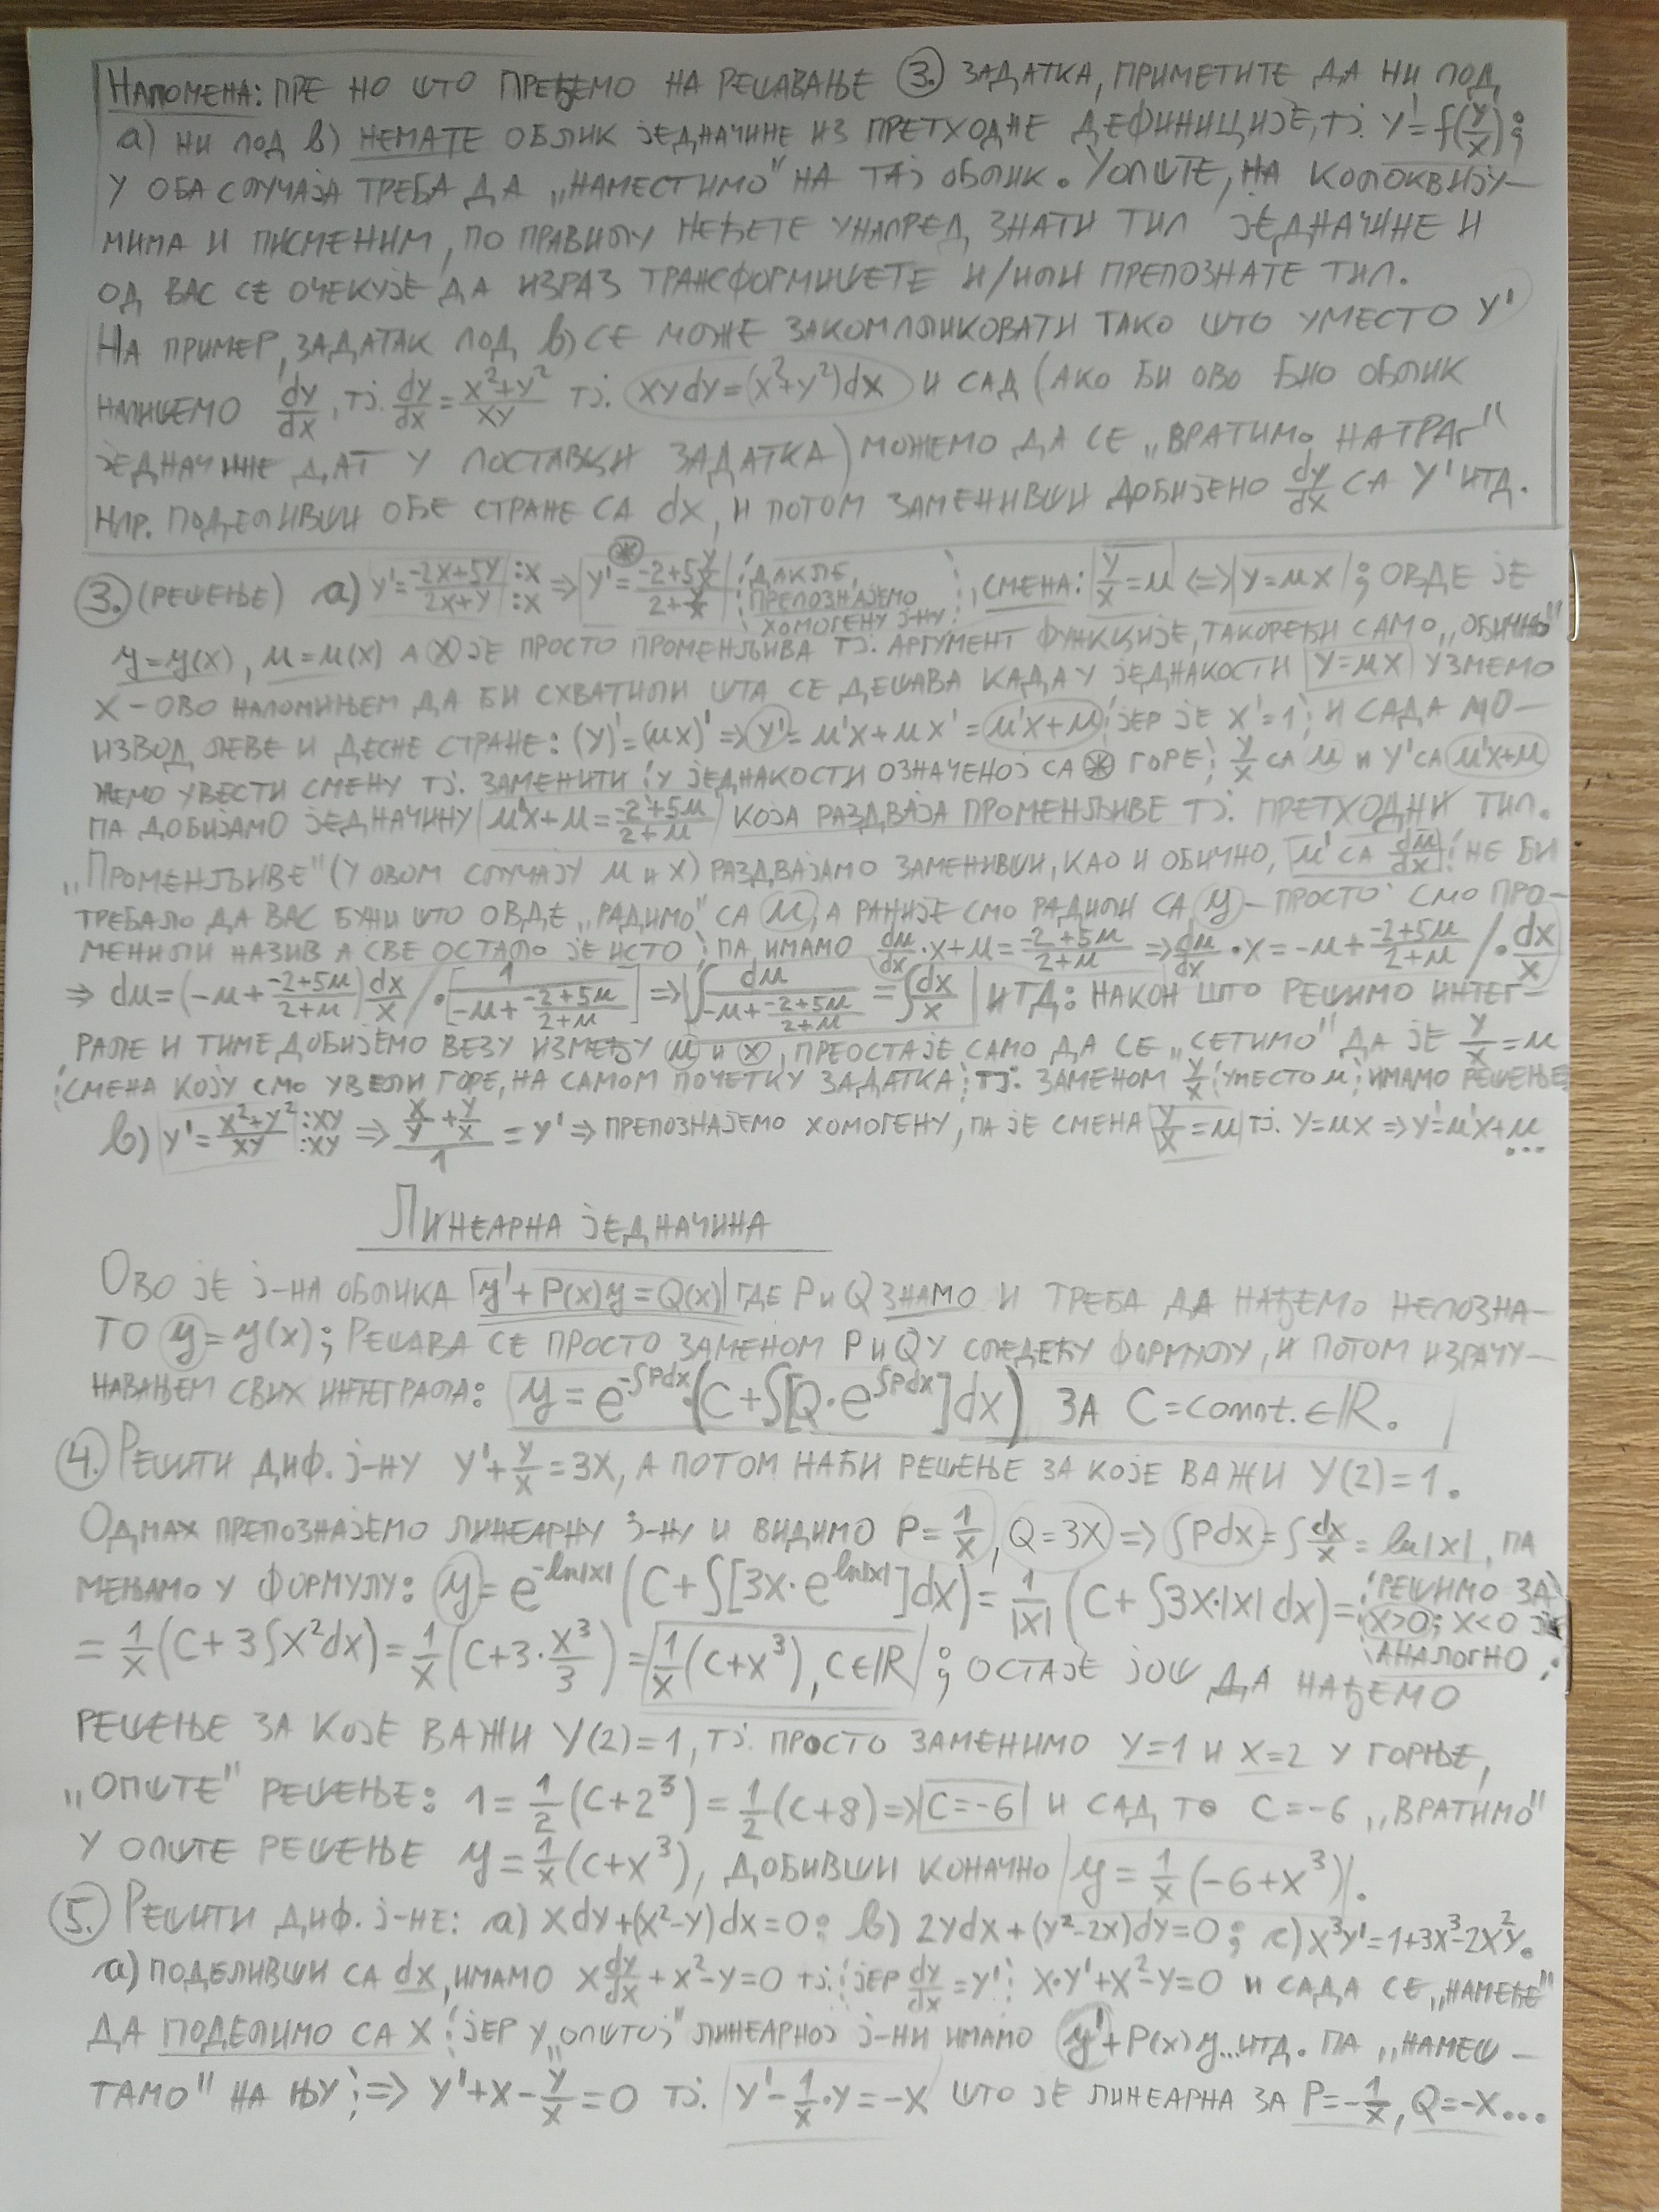 Напомена: пре но што пређемо на решавање ③. задатка, приметите да ни под
а) ни под b) немате облик једначине из претходне дефиниције, тј. y'=f(y/x);
у оба случаја треба да „наместимо" на тај облик. Уопште, на колоквију-
мима и писменим, по правилу нећете унапред знати тип једначине и
од вас се очекује да израз трансформишете и/или препознате тип.
На пример, задатак под b) се може закомпликовати тако што уместо y'
напишемо dy/dx, тј. dy/dx=(x²+y²)/xy тј. xydy=(x²+y²)dx и сад (ако би ово био облик
једначине дат у поставци задатка) можемо да се „вратимо натраг"
нпр. поделивши обе стране са dx, и потом заменивши добијено dy/dx са y' итд.
③. (решење) a) y'=(-2x+5y)/(2x+y) :x/:x ⇒ y'=(-2+5y/x)/(2+y/x) ⊛ дакле, препознајемо хомогену ј-ну, смена: y/x=u ⟺ y=ux; овде је
y=y(x), u=u(x) а x је просто променљива тј. аргумент функције, такорећи само „обично"
x – ово напомињем да би схватили шта се дешава када у једнакости y=ux узмемо
извод леве и десне стране: (y)'=(ux)' ⇒ y'=u'x+ux'=u'x+u јер је x'=1; и сада мо-
жемо увести смену тј. заменити у једнакости означеној са ⊛ горе y/x са u и y' са u'x+u
па добијамо једначину u'x+u=(-2+5u)/(2+u) која раздваја променљиве тј. претходни тип.
„Променљиве" (у овом случају u и x) раздвајамо заменивши, као и обично, u' са du/dx; не би
требало да вас буни што овде „радимо" са u, а раније смо радили са y – просто смо про-
менили назив а све остало је исто; па имамо du/dx·x+u=(-2+5u)/(2+u) ⇒ du/dx·x=-u+(-2+5u)/(2+u) /·dx/x
⇒ du=(-u+(-2+5u)/(2+u))dx/x /·[1/(-u+(-2+5u)/(2+u))] ⇒ ∫du/(-u+(-2+5u)/(2+u))=∫dx/x итд: након што решимо интег-
рале и тиме добијемо везу између u и x, преостаје само да се „сетимо" да је y/x=u
смена коју смо увели горе, на самом почетку задатка; тј. заменом y/x уместо u имамо решење
b) y'=(x²+y²)/xy :xy/:xy ⇒ (x/y+y/x)/1=y' ⇒ препознајемо хомогену, па је смена y/x=u тј. y=ux ⇒ y'=u'x+u...
Линеарна једначина
Ово је ј-на облика y'+P(x)y=Q(x) где P и Q знамо и треба да нађемо непозна-
то y=y(x); решава се просто заменом P и Q у следећу формулу, и потом израчу-
навањем свих интеграла: y=e^(-∫Pdx)·(C+∫[Q·e^(∫Pdx)]dx) за C=const.∈ℝ.
④. Решити диф. ј-ну y'+y/x=3x, а потом наћи решење за које важи y(2)=1.
Одмах препознајемо линеарну ј-ну и видимо P=1/x, Q=3x ⇒ ∫Pdx=∫dx/x=ln|x|, па
мењамо у формулу: y=e^(-ln|x|)(C+∫[3x·e^(ln|x|)]dx)=1/|x|(C+∫3x·|x|dx)= решимо за x>0; x<0 је аналогно;
=1/x(C+3∫x²dx)=1/x(C+3·x³/3)=1/x(C+x³), C∈ℝ; остаје још да нађемо
решење за које важи y(2)=1, тј. просто заменимо y=1 и x=2 у горње,
„опште" решење: 1=1/2(C+2³)=1/2(C+8) ⇒ C=-6 и сад то C=-6 „вратимо"
у опште решење y=1/x(C+x³), добивши коначно y=1/x(-6+x³).
⑤. Решити диф. ј-не: a) xdy+(x²-y)dx=0; b) 2ydx+(y²-2x)dy=0; c) x³y'=1+3x³-2x²y.
a) поделивши са dx, имамо x dy/dx+x²-y=0 тј. јер dy/dx=y' x·y'+x²-y=0 и сада се „намеће"
да поделимо са x јер у „општој" линеарној ј-ни имамо y'+P(x)y...итд. па „намеш-
тамо" на њу ⇒ y'+x-y/x=0 тј. y'-1/x·y=-x што је линеарна за P=-1/x, Q=-x...